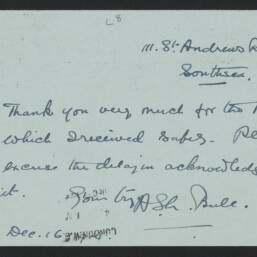 L8
111. St Andrews R
Southsea.
Thank you very much for the
which I received safely. Pl
excuse the delay in acknowledg
it.
Yours truly
Dec. 16